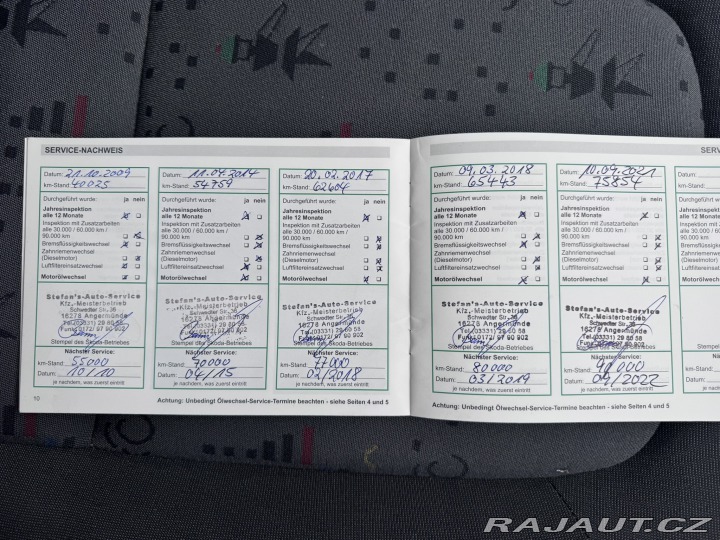 SERVICE-NACHWEIS
Datum: 21.10.2009
km-Stand: 40025
Durchgeführt wurde: ja nein
Jahresinspektion
alle 12 Monate
Inspektion mit Zusatzarbeiten
alle 30.000 / 60.000 km /
90.000 km
Bremsflüssigkeitswechsel
Zahnriemenwechsel
(Dieselmotor)
Luftfiltereinsatzwechsel
Motorölwechsel
Stefan's-Auto-Service
Kfz.-Meisterbetrieb
Schwedter Str. 36
16278 Angermünde
Tel.(03331) 29 80 58
Funk:0172/ 97 90 902
Stempel des Skoda-Betriebes
Nächster Service:
km-Stand: 55000
Datum: 10/10
je nachdem, was zuerst eintritt
Datum: 11.04.2014
km-Stand: 54759
Durchgeführt wurde: ja nein
Jahresinspektion
alle 12 Monate
Inspektion mit Zusatzarbeiten
alle 30.000 / 60.000 km /
90.000 km
Bremsflüssigkeitswechsel
Zahnriemenwechsel
(Dieselmotor)
Luftfiltereinsatzwechsel
Motorölwechsel
Stefan's-Auto-Service
Kfz.-Meisterbetrieb
Schwedter Str. 36
16278 Angermünde
Tel.(03331) 29 80 58
Funk:0172/ 97 90 902
Stempel des Skoda-Betriebes
Nächster Service:
km-Stand: 70000
Datum: 04/15
je nachdem, was zuerst eintritt
Datum: 20.02.2017
km-Stand: 62604
Durchgeführt wurde: ja nein
Jahresinspektion
alle 12 Monate
Inspektion mit Zusatzarbeiten
alle 30.000 / 60.000 km /
90.000 km
Bremsflüssigkeitswechsel
Zahnriemenwechsel
(Dieselmotor)
Luftfiltereinsatzwechsel
Motorölwechsel
Stefan's-Auto-Service
Kfz.-Meisterbetrieb
Schwedter Str. 36
16278 Angermünde
Tel.(03331) 29 80 58
Funk:0172/ 97 90 902
Stempel des Skoda-Betriebes
Nächster Service:
km-Stand: 77000
Datum: 02/2018
je nachdem, was zuerst eintritt
10
Achtung: Unbedingt Ölwechsel-Service-Termine beachten - siehe Seiten 4 und 5
SERV
Datum: 09.03.2018
km-Stand: 65443
Durchgeführt wurde: ja nein
Jahresinspektion
alle 12 Monate
Inspektion mit Zusatzarbeiten
alle 30.000 / 60.000 km /
90.000 km
Bremsflüssigkeitswechsel
Zahnriemenwechsel
(Dieselmotor)
Luftfiltereinsatzwechsel
Motorölwechsel
Stefan's-Auto-Service
Kfz.-Meisterbetrieb
Schwedter Str. 36
16278 Angermünde
Tel.(03331) 29 80 58
Funk:0172/ 97 90 902
Stempel des Skoda-Betriebes
Nächster Service:
km-Stand: 80000
Datum: 03/2019
je nachdem, was zuerst eintritt
Datum: 10.09.2021
km-Stand: 75854
Durchgeführt wurde: ja nein
Jahresinspektion
alle 12 Monate
Inspektion mit Zusatzarbeiten
alle 30.000 / 60.000 km /
90.000 km
Bremsflüssigkeitswechsel
Zahnriemenwechsel
(Dieselmotor)
Luftfiltereinsatzwechsel
Motorölwechsel
Stefan's-Auto-Service
Kfz.-Meisterbetrieb
Schwedter Str. 36
16278 Angermünde
Tel.(03331) 29 80 58
Funk:0172/ 97 90 902
Stempel des Skoda-Betriebes
Nächster Service:
km-Stand: 90000
Datum: 09/2022
je nachdem, was zuerst eintritt
Achtung: Unbedingt Ölwechsel-Service-Termine beachten - siehe Seiten 4 und 5
RAJAUT.CZ